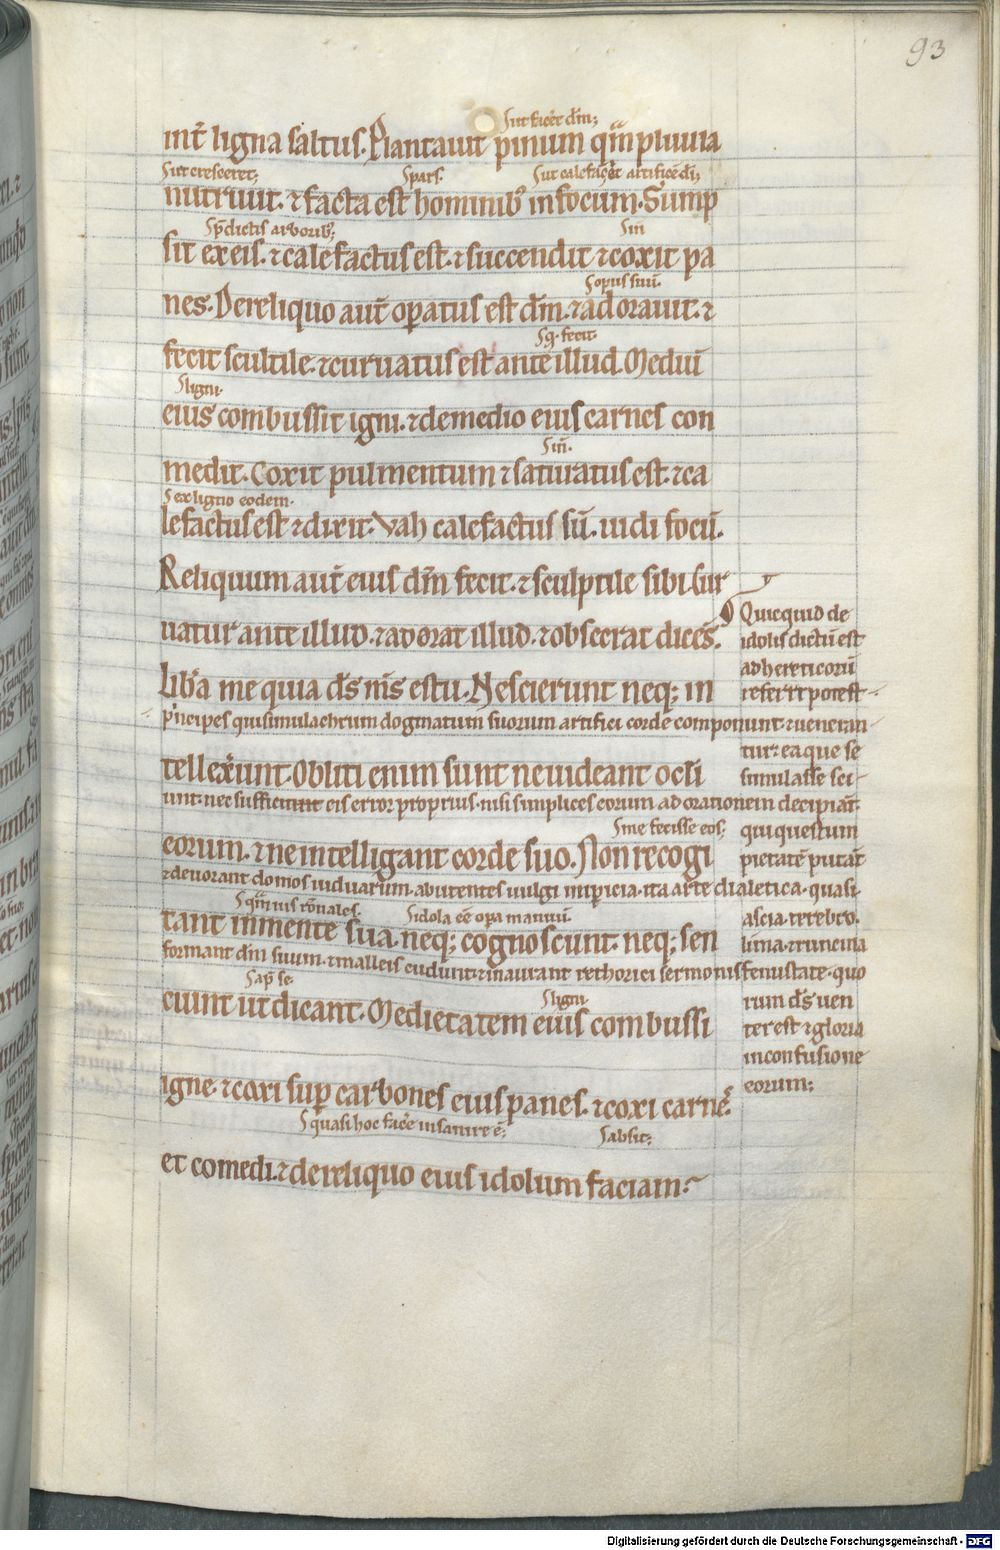 93
S ut fieret dm̄;
int̄ ligna saltus. Plantauit pinum qm̄ pluuia
S ut cresceret; S pars. S ut calefaceret artificē dī;
nutriuit. ⁊ facta est hominibꝰ in focum. Sump
S p̄dictis arboribꝫ; S in
sit ex eis. ⁊ calefactus est. ⁊ succendit ⁊ coxit pa
S opus suū.
nes. De reliquo aut̄ opatus est dm̄. ⁊ adorauit. ⁊
S q̄ fecit.
fecit scultile. ⁊ curuatus est ante illud. Mediū
S ligni.
eius combussit igni. ⁊ de medio eius carnes con
S in.
medit. Coxit pulmentum ⁊ saturatus est. ⁊ ca
S ex ligno eodem.
lefactus est ⁊ dixit. Vah calefactus sū. uidi focū.
Reliquum aut̄ eius dm̄ fecit. ⁊ sculptile sibi. Cur
uatur ante illud. ⁊ adorat illud. ⁊ obsecrat dicēs.
Lib̄a me quia ds̄ ms̄ es tu. Nescierunt neq; in
Quicquid de
idolis dictū est
ad hereticorū
referri potest
p'ncipes qui simulachrum dogmatum suorum artifici corde componunt ⁊ ueneran
tur ea que se
tellex̄unt. Obliti enim sunt ne uideant oc̄li
simulasse sci
unt. nec sufficiunt eis error proprius. nisi simplices eorum adorationem decipiāt.
S me fecisse eos;
qui questum
eorum. ⁊ ne intelligant corde suo. Non recogi
pietatē putāt
⁊ deuorant domos uiduarum. abutentes uulgi impericia. ita arte dialetica. quasi
S idola eē opa manuū.
ascia. terebro.
tant in mente sua. neq; cognoscunt. neq; sen
lima. ⁊ runcina
formant dm̄ suum. ⁊ malleis cudunt. ⁊ inaurant rethorici sermonis uenustate. quo
S ap̄ se. S ligni.
rum ds̄ uen
ciunt ut dicant. Medietatem eius combussi
ter est ⁊ gloria
in confusione
eorum;
igne. ⁊ coxi sup carbones eius panes. ⁊ coxi carnē.
S quasi hoc facēe insanire ē; S absit;
et comedi. ⁊ de reliquo eius idolum faciam.
Digitalisierung gefördert durch die Deutsche Forschungsgemeinschaft - DFG